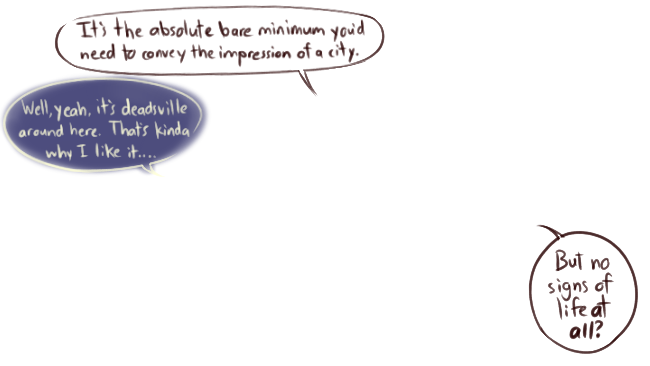 It's the absolute bare minimum you'd
need to convey the impression of a city.
Well, yeah, it's deadsville
around here. That's kinda
why I like it....
But no
signs of
life at
all?